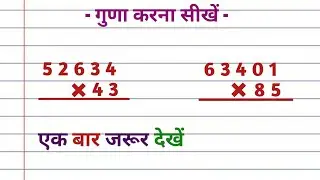 - गुणा करना सीखें -
52634 63401
×43 ×85
एक बार जरूर देखें